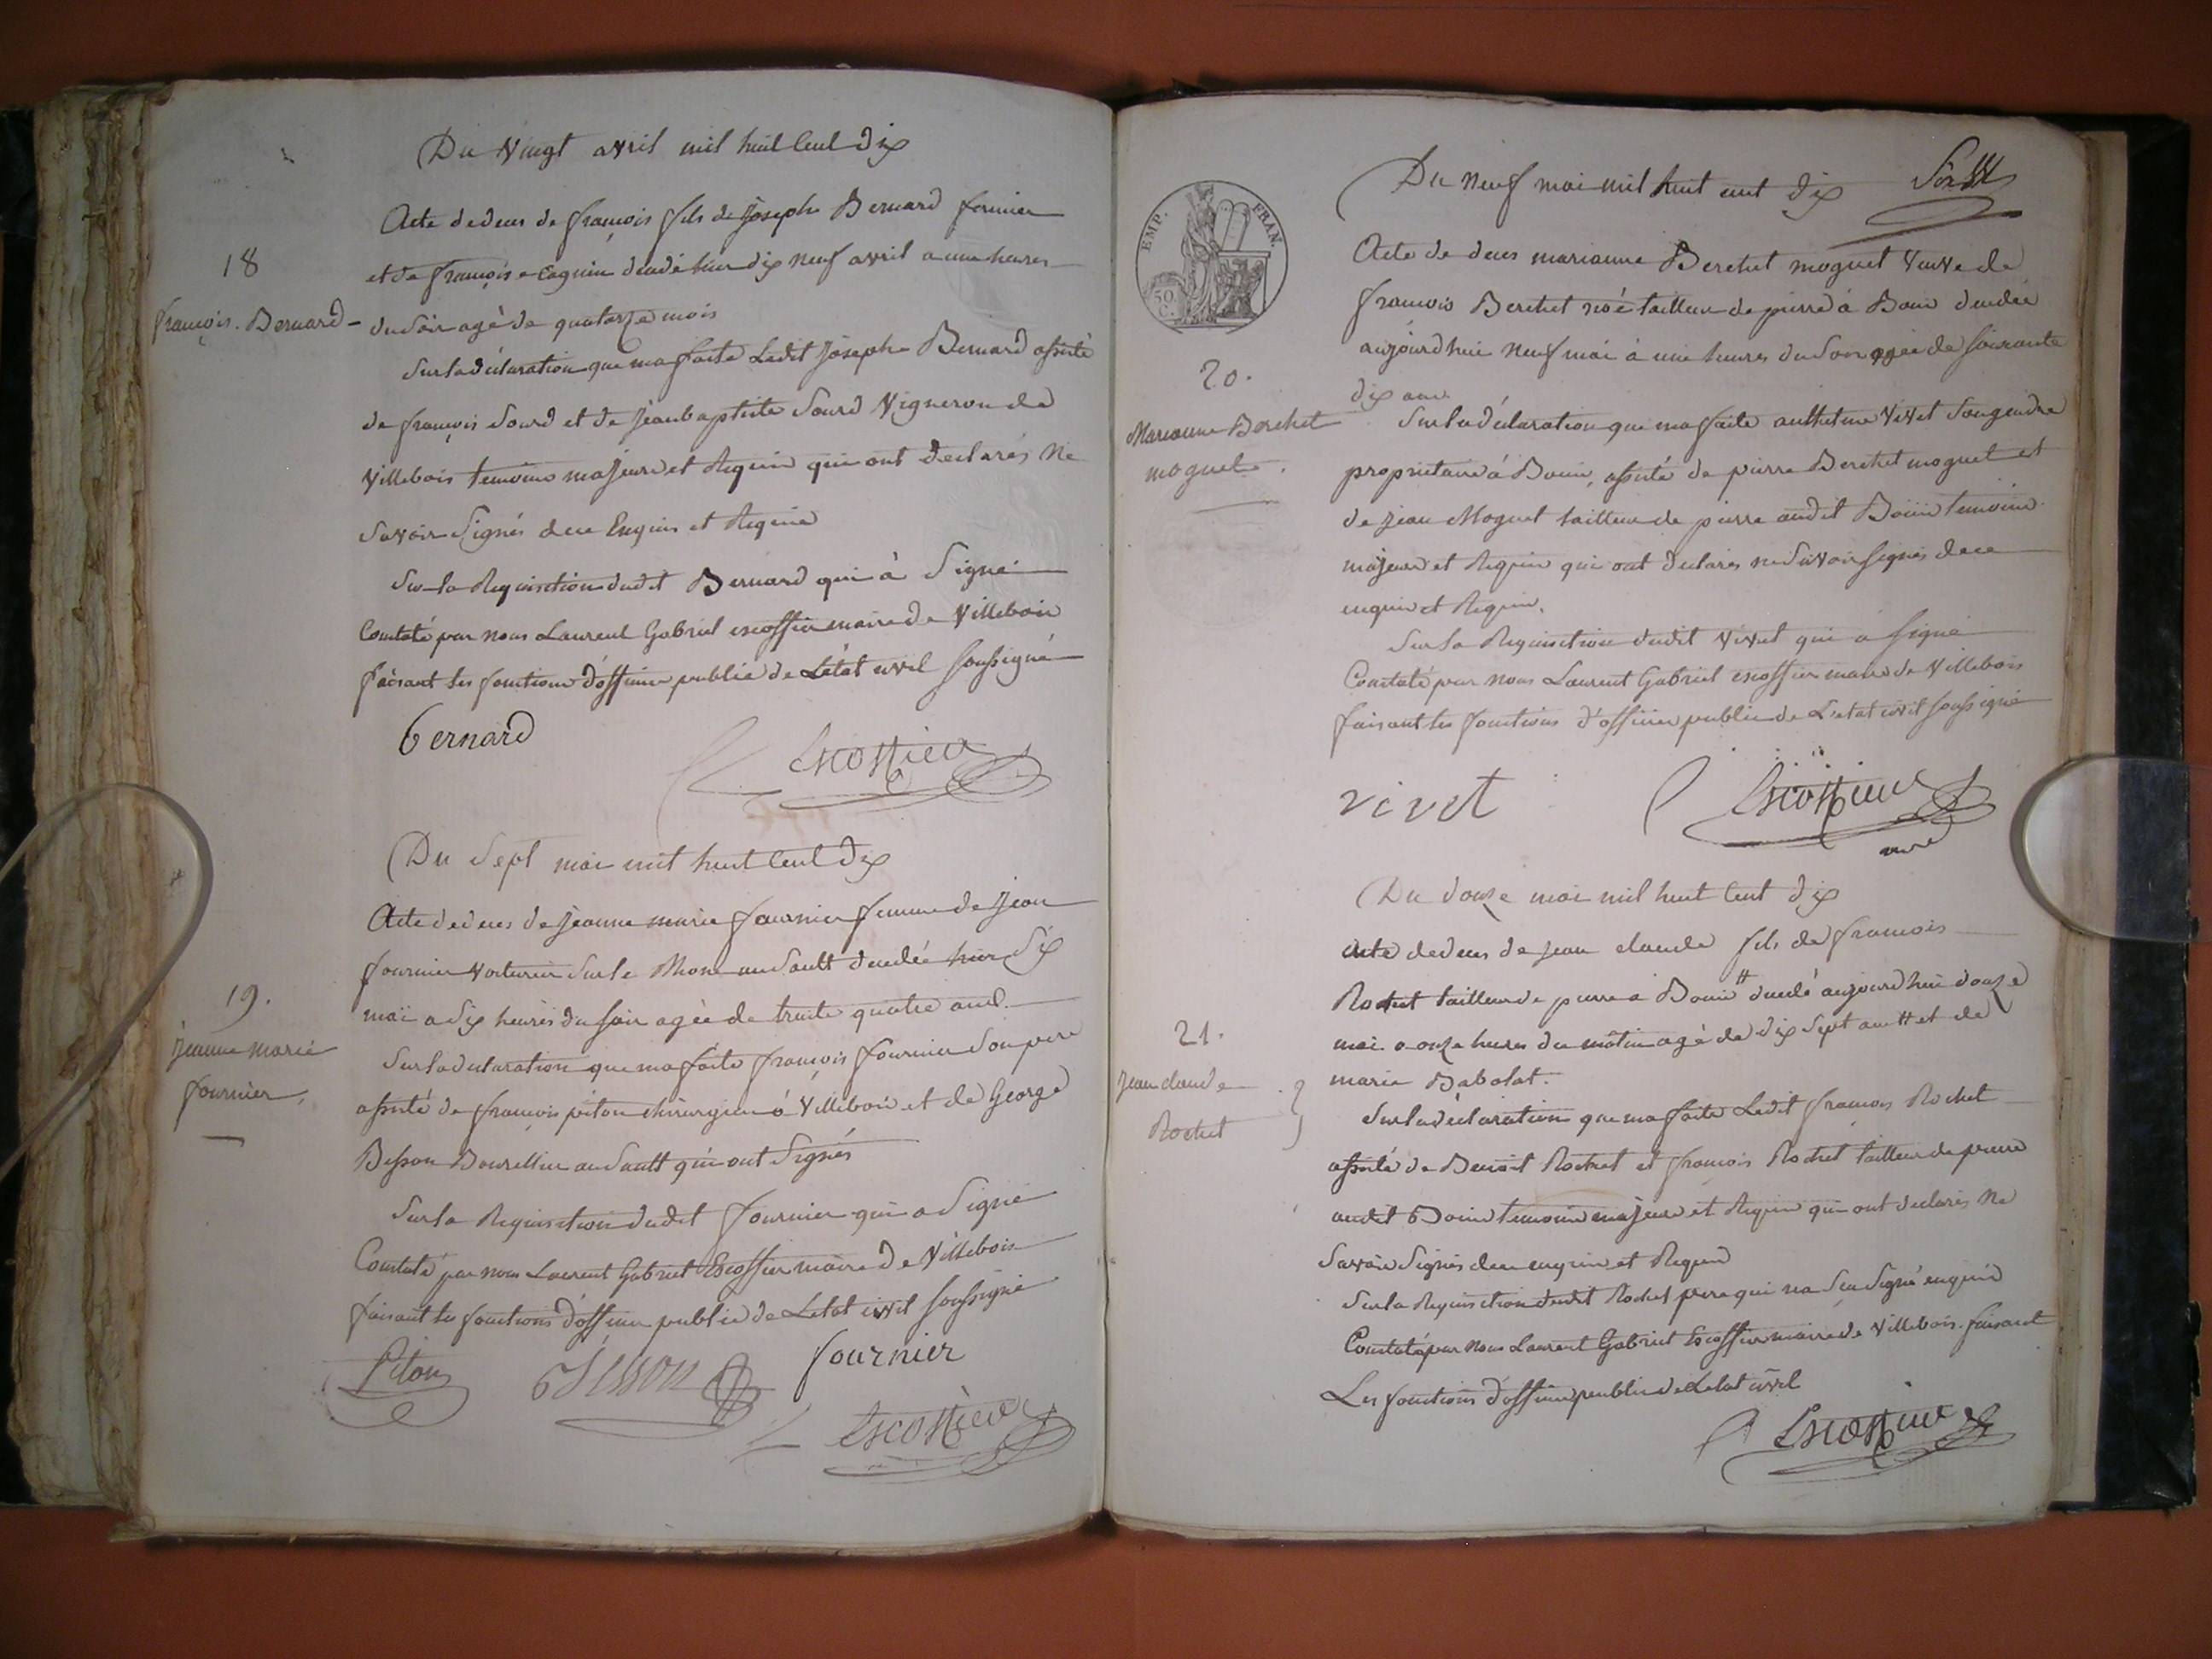 Du Vingt avril mil huit Cent dix
18
françois. Bernard
Acte de deces de françois fils de Joseph Bernard fermier
et de françoise Coquin décédé hier dix neuf avril a une heures
du soir agé de quatorze mois
Sur la déclaration que ma faite Ledit Joseph Bernard assisté
de françois Sourd et de Jean baptiste Sourd Vigneron de
Villebois temoins majeurs et Requis qui ont declarés Ne
Savoir Signés de ce Enquis et Requis
Sur la Requisition dudit Bernard qui à Signé
Constaté par nous Laurent Gabriel escoffier maire de Villebois
faisant les fonctions d'officier public de L'état civil soussigné
bernard
Escoffier
Du Sept mai mil huit Cent dix
19.
Jeanne marie
fournier,
Acte de deces de Jeanne marie fournier femme de Jean
fournier voiturier sur le Rhone au Sault decedée hier Six
mai a dix heures du soir agée de trente quatre ans.
Sur la declaration que ma faite françois fournier Son pere
assisté de françois piton chirurgien à Villebois et de George
Besson Bourellier au Sault qui ont Signés
Sur la Requisition dudit fournier qui a Signé
Constaté par nous Laurent Gabriel Escoffier maire de Villebois
faisant les fonctions d'officier public de Letat civil soussigné
Piton besson fournier
Escoffier
Du neuf mai mil huit cent dix
EMP. FRAN.
50 C.
20.
Marianne Berchet
moguet.
Acte de deces marianne Berchet moguet Veuve de
françois Berchet tailleur de pierre à Bouis decedée
aujourdhui neuf mai à une heures du Soir agée de soixante
dix ans
Sur la déclaration que ma faite anthelme Vivet Son gendre
proprietaire à Bouis, assisté de pierre Berchet moguet et
de Jean Moguet tailleur de pierre audit Bouis temoins
majeurs et Requis qui ont declarés ne Savoir signés de ce
enquis et Requis.
Sur la Requisition dudit Vivet qui a signé
Constaté par nous Laurent Gabriel escoffier maire de Villebois
faisant les fonctions d'officier public de L'etat civil soussigné
vivet
Escoffier
Du douze mai mil huit Cent dix
21.
Jean claude
Rochet
Acte de deces de Jean claude fils de françois
Rochet tailleur de pierre a Bouis # decedé aujourdhui douze
mai a onze heures du mâtin agé de dix Sept ans # et de
marie Babolat.
Sur la déclaration que ma faite Ledit françois Rochet
assisté de Benoit Rochet et françois Rochet tailleur de pierre
audit Bouis temoins majeurs et Requis qui ont declarés Ne
Savoir Signés de ce enquis et Requis
Sur la Requisition dudit Rochet pere qui na Su Signé enquis
Constaté par nous Laurent Gabriel Escoffier maire de Villebois. faisant
Les fonctions d'officier public de Letat civil
Escoffier